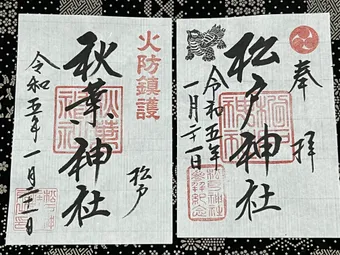 奉拝
松戸神社
令和五年
一月二十一日
松戸神社
参拝記念
火防鎮護
松戸
秋葉神社
令和五年一月二十一日